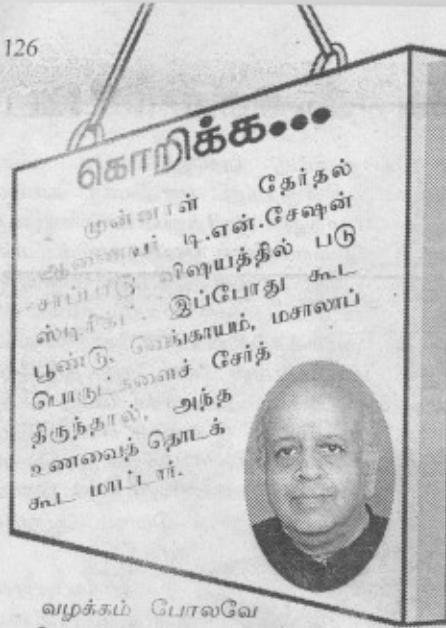 126
கொறிக்க...
முன்னாள் தேர்தல்
ஆணையர் டி.என்.சேஷன்
சாப்பாடு விஷயத்தில் படு
ஸ்டிரிக்ட். இப்போது கூட
பூண்டு, வெங்காயம், மசாலாப்
பொருட்களைச் சேர்த்
திருந்தால், அந்த
உணவைத் தொடக்
கூட மாட்டார்.
வழக்கம் போலவே